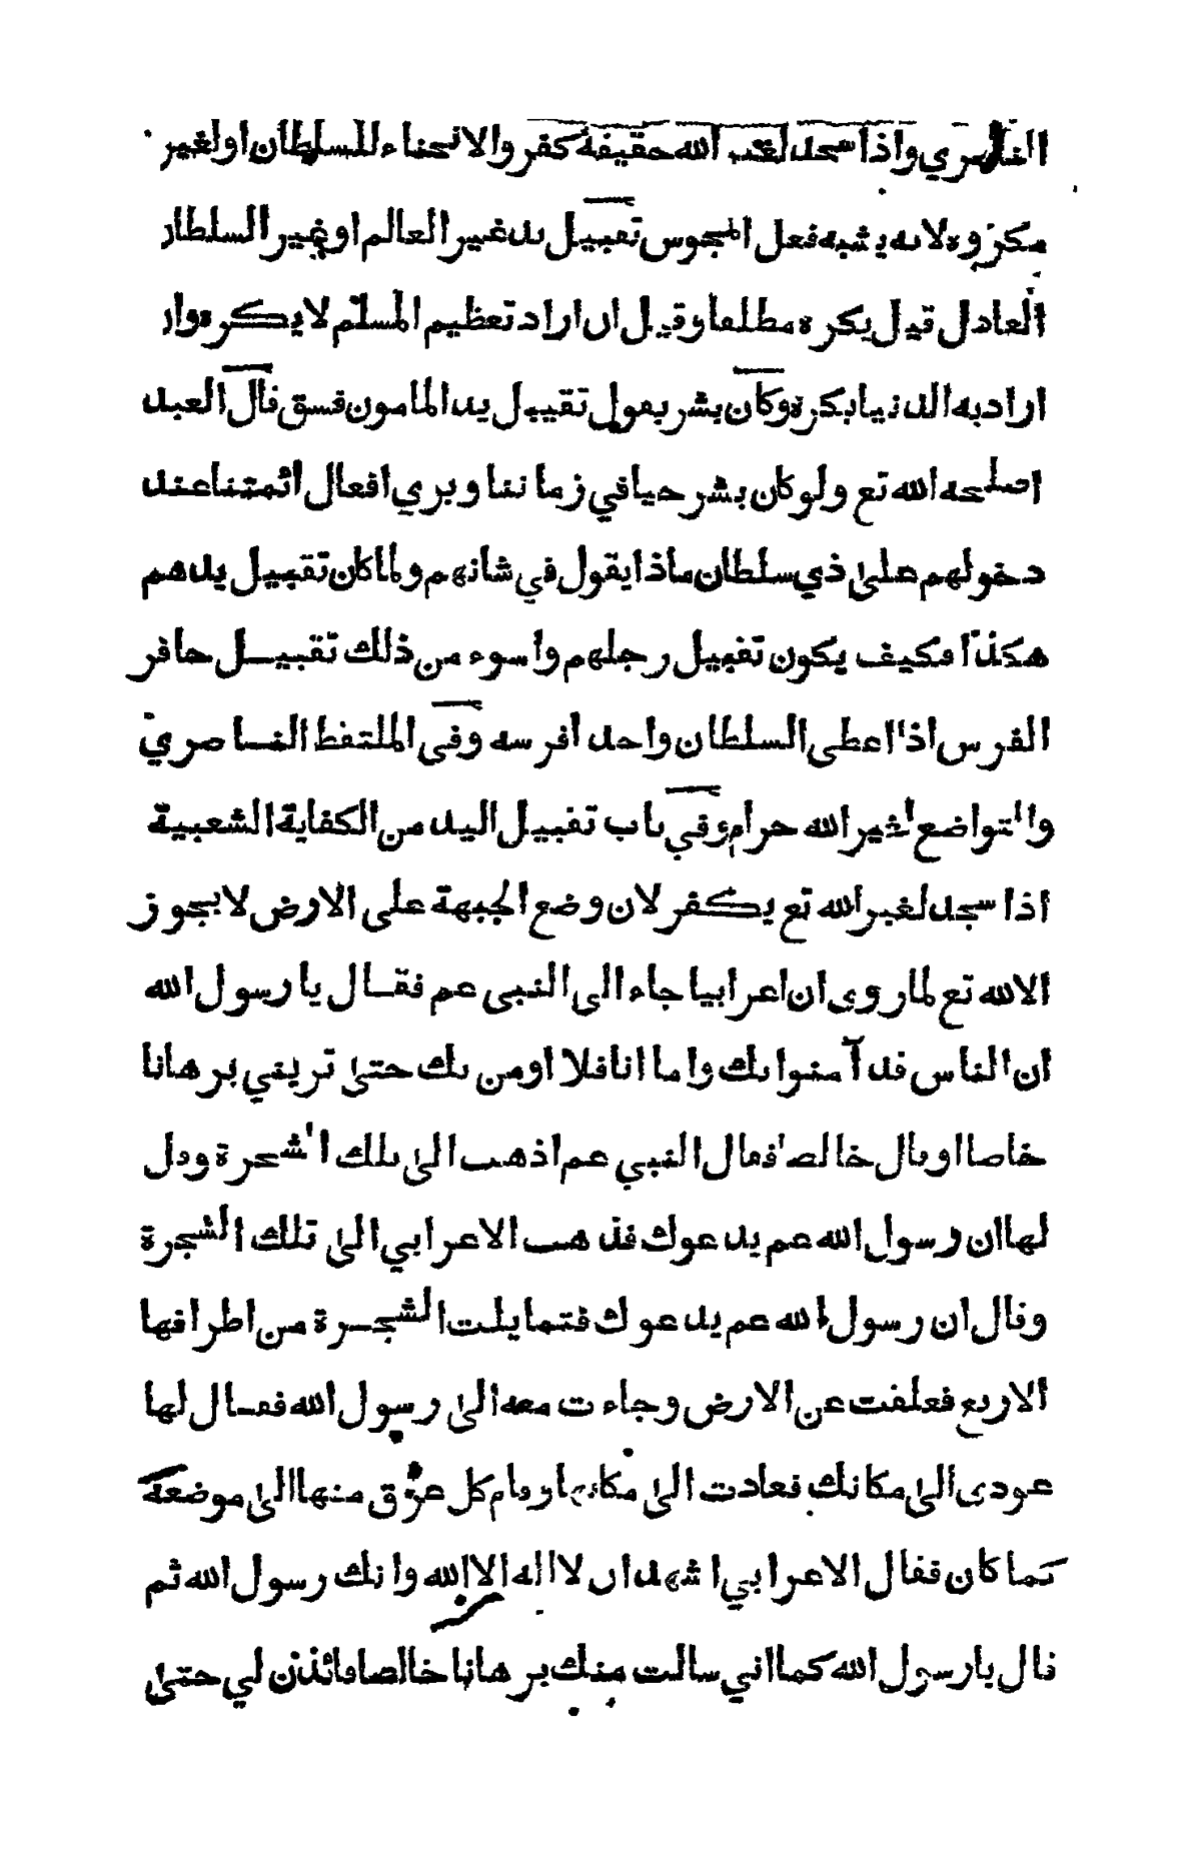 الناصري واذا سجد لغير الله حقيقة كفر والانحناء للسلطان او لغيره
مكروه لانه يشبه فعل المجوس تقبيل يد غير العالم او غير السلطان
العادل قيل يكره مطلقا وقيل ان اراد تعظيم المسلم لا يكره وان
اراد به الدنيا يكره وكان بشر يقول تقبيل يد المامون فسق قال العبد
اصلحه الله تع ولو كان بشر حيا في زماننا ويري افعال ائمتنا عند
دخولهم على ذي سلطان ماذا يقول في شانهم ولما كان تقبيل يدهم
هكذا فكيف يكون تقبيل رجلهم واسوء من ذلك تقبيل حافر
الفرس اذا اعطى السلطان واحدا فرسه وفى الملتقط الناصري
والتواضع لغير الله حرام وفي باب تقبيل اليد من الكفاية الشعبية
اذا سجد لغير الله تع يكفر لان وضع الجبهة على الارض لا يجوز
الا لله تع لما روى ان اعرابيا جاء الى النبى عم فقال يا رسول الله
ان الناس قد آمنوا بك واما انا فلا اومن بك حتى تريني برهانا
خاصا او قال خالصا فقال النبي عم اذهب الى تلك الشجرة وقل
لها ان رسول الله عم يدعوك فذهب الاعرابي الى تلك الشجرة
وقال ان رسول الله عم يدعوك فتمايلت الشجرة من اطرافها
الاربع فعلقت عن الارض وجاءت معه الى رسول الله فقال لها
عودى الى مكانك فعادت الى مكانها وقام كل عرق منها الى موضعه
كما كان فقال الاعرابي اشهد ان لا اله الا الله وانك رسول الله ثم
قال يا رسول الله كما اني سالت منك برهانا خالصا فائذن لي حتى